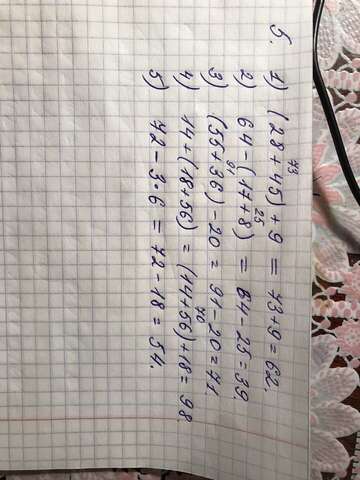 73
5. 1) (28+45)+9 = 73+9=62.
25
2) 64-(17+8) = 64-25=39.
91
3) (55+36)-20 = 91-20=71.
70
4) 14+(18+56) = (14+56)+18=98.
5) 72-3·6=72-18=54.